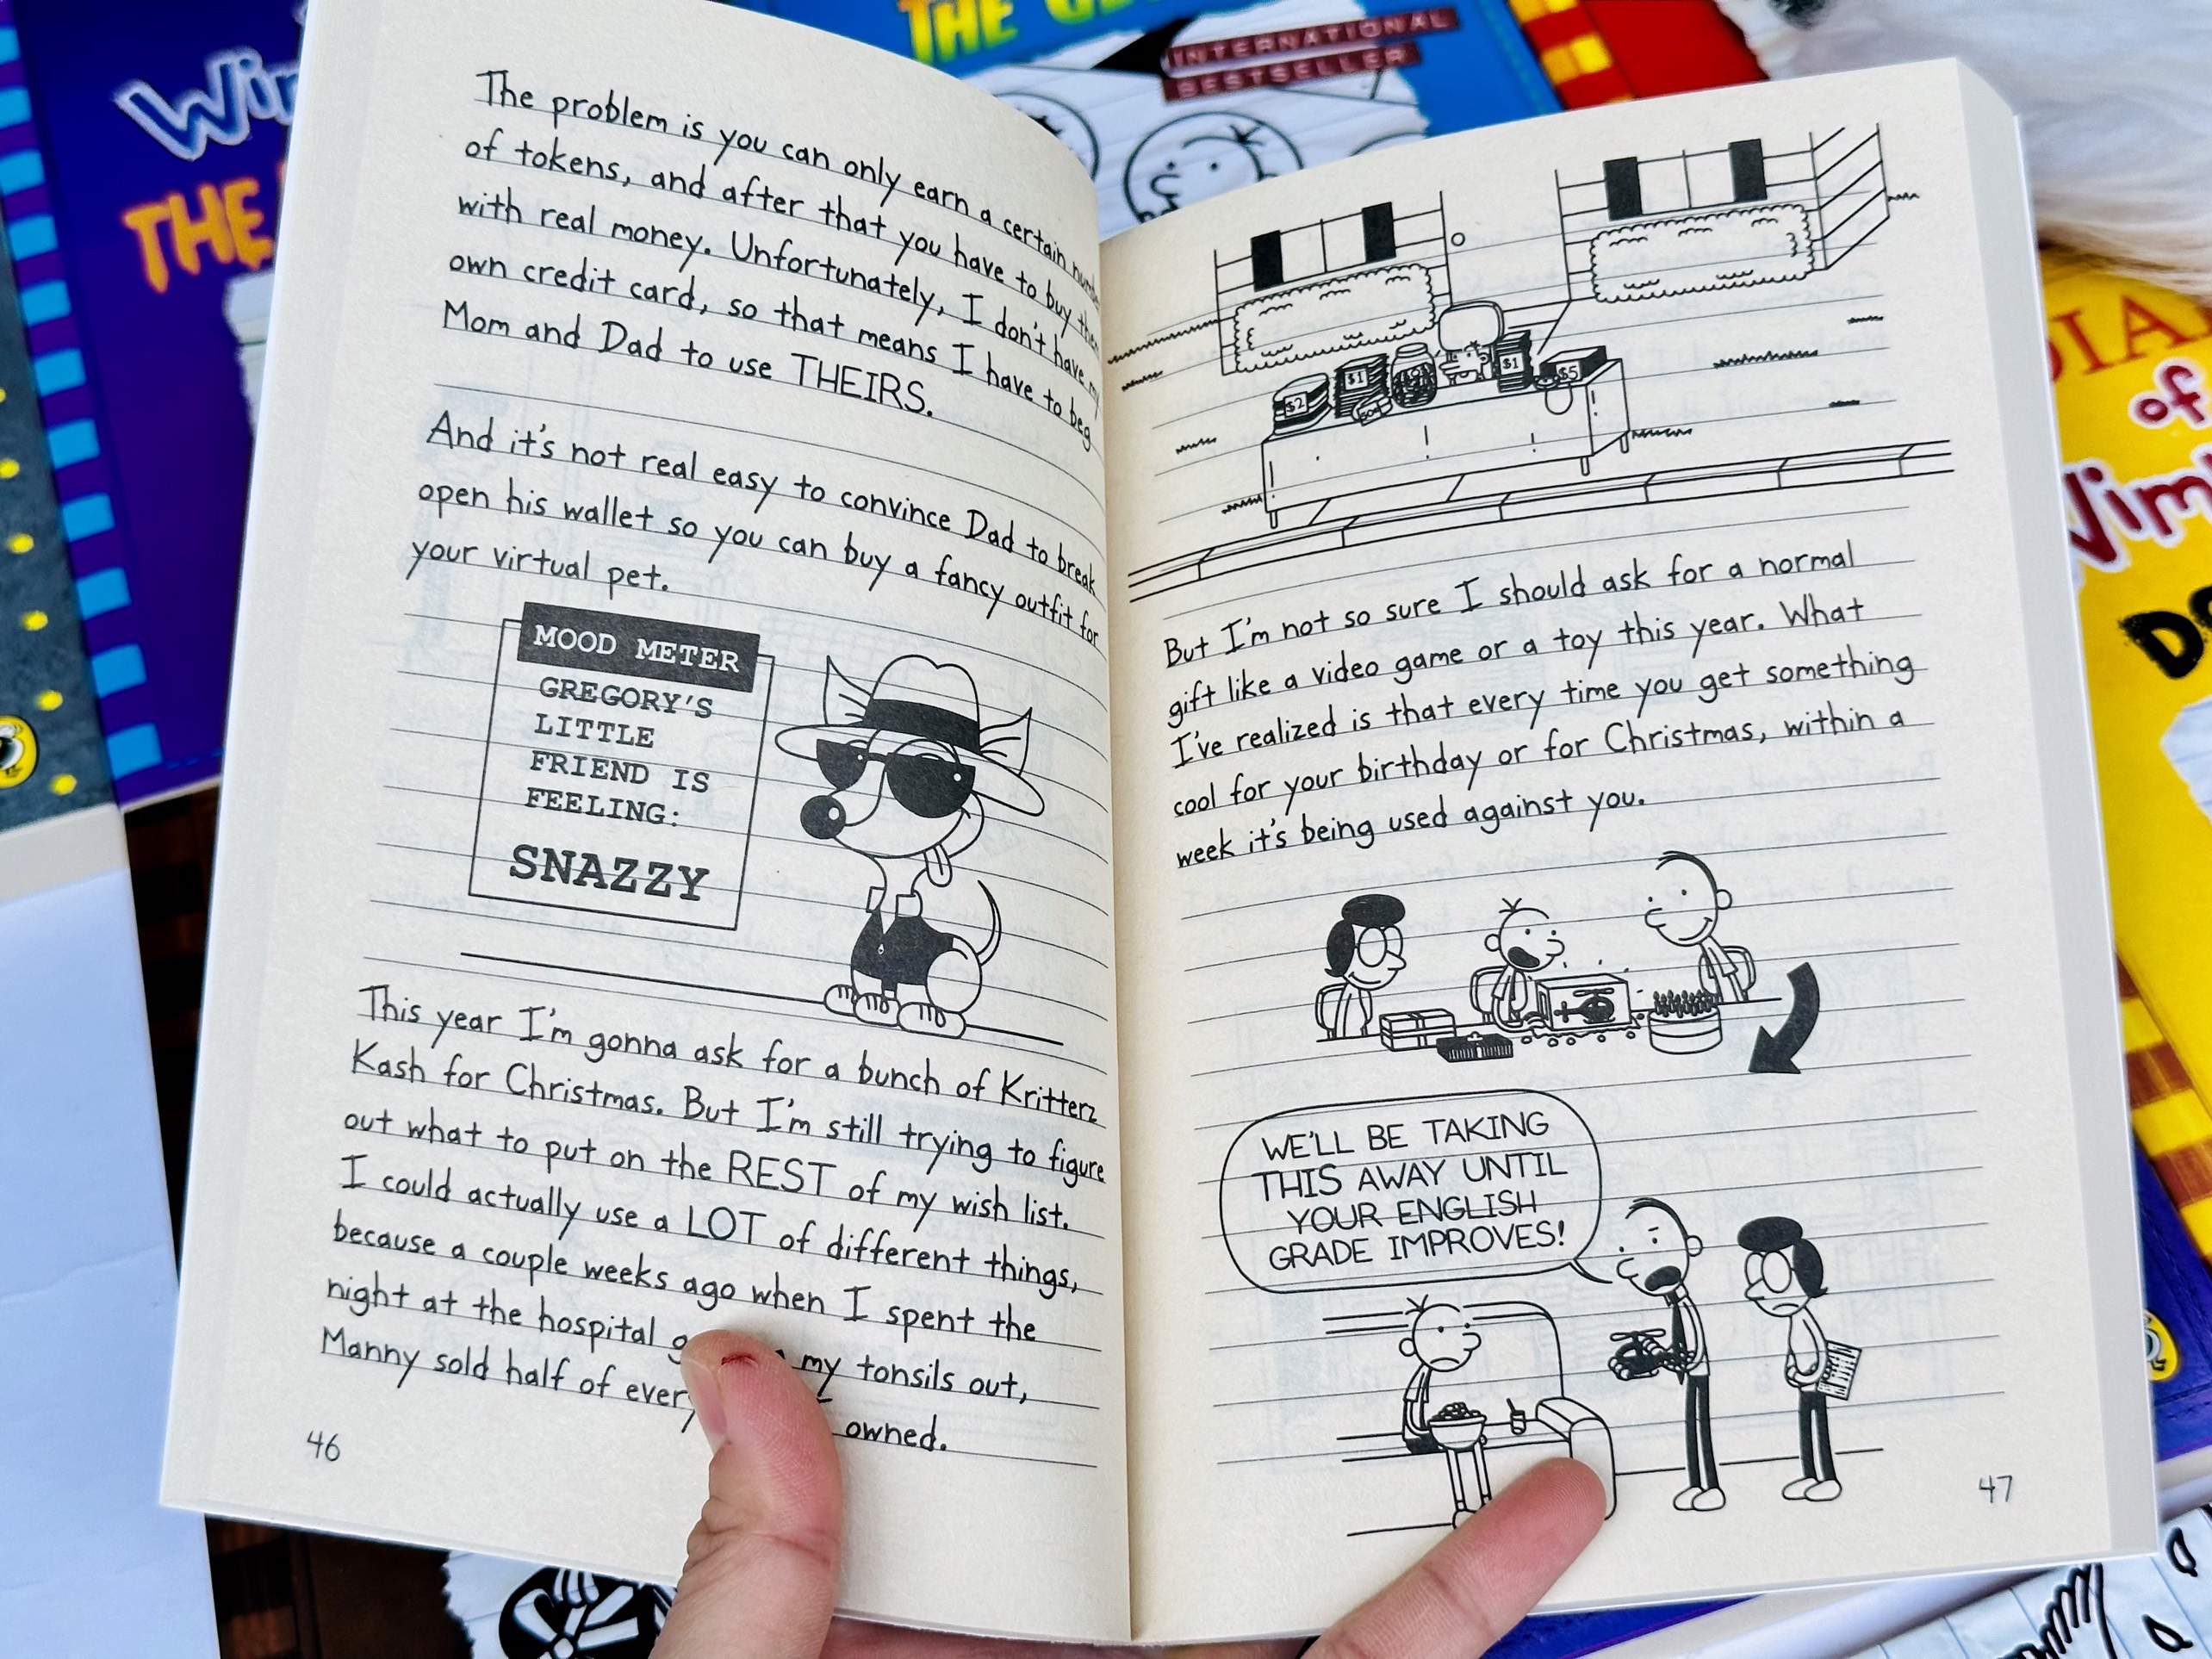 THE
INTERNATIONAL
BESTSELLER
THE
of
The problem is you can only earn a certain
of tokens, and after that you have to buy
with real money. Unfortunately, I don't have my
own credit card, so that means I have to beg
Mom and Dad to use THEIRS.
And it's not real easy to convince Dad to break
open his wallet so you can buy a fancy outfit for
your virtual pet.
MOOD METER
GREGORY'S
LITTLE
FRIEND IS
FEELING:
SNAZZY
This year I'm gonna ask for a bunch of Kritterz
Kash for Christmas. But I'm still trying to figure
out what to put on the REST of my wish list.
I could actually use a LOT of different things,
because a couple weeks ago when I spent the
night at the hospital my tonsils out,
Manny sold half of owned.
46
$2
$1
50¢
$1
$5
But I'm not so sure I should ask for a normal
gift like a video game or a toy this year. What
I've realized is that every time you get something
cool for your birthday or for Christmas, within a
week it's being used against you.
WE'LL BE TAKING
THIS AWAY UNTIL
YOUR ENGLISH
GRADE IMPROVES!
47